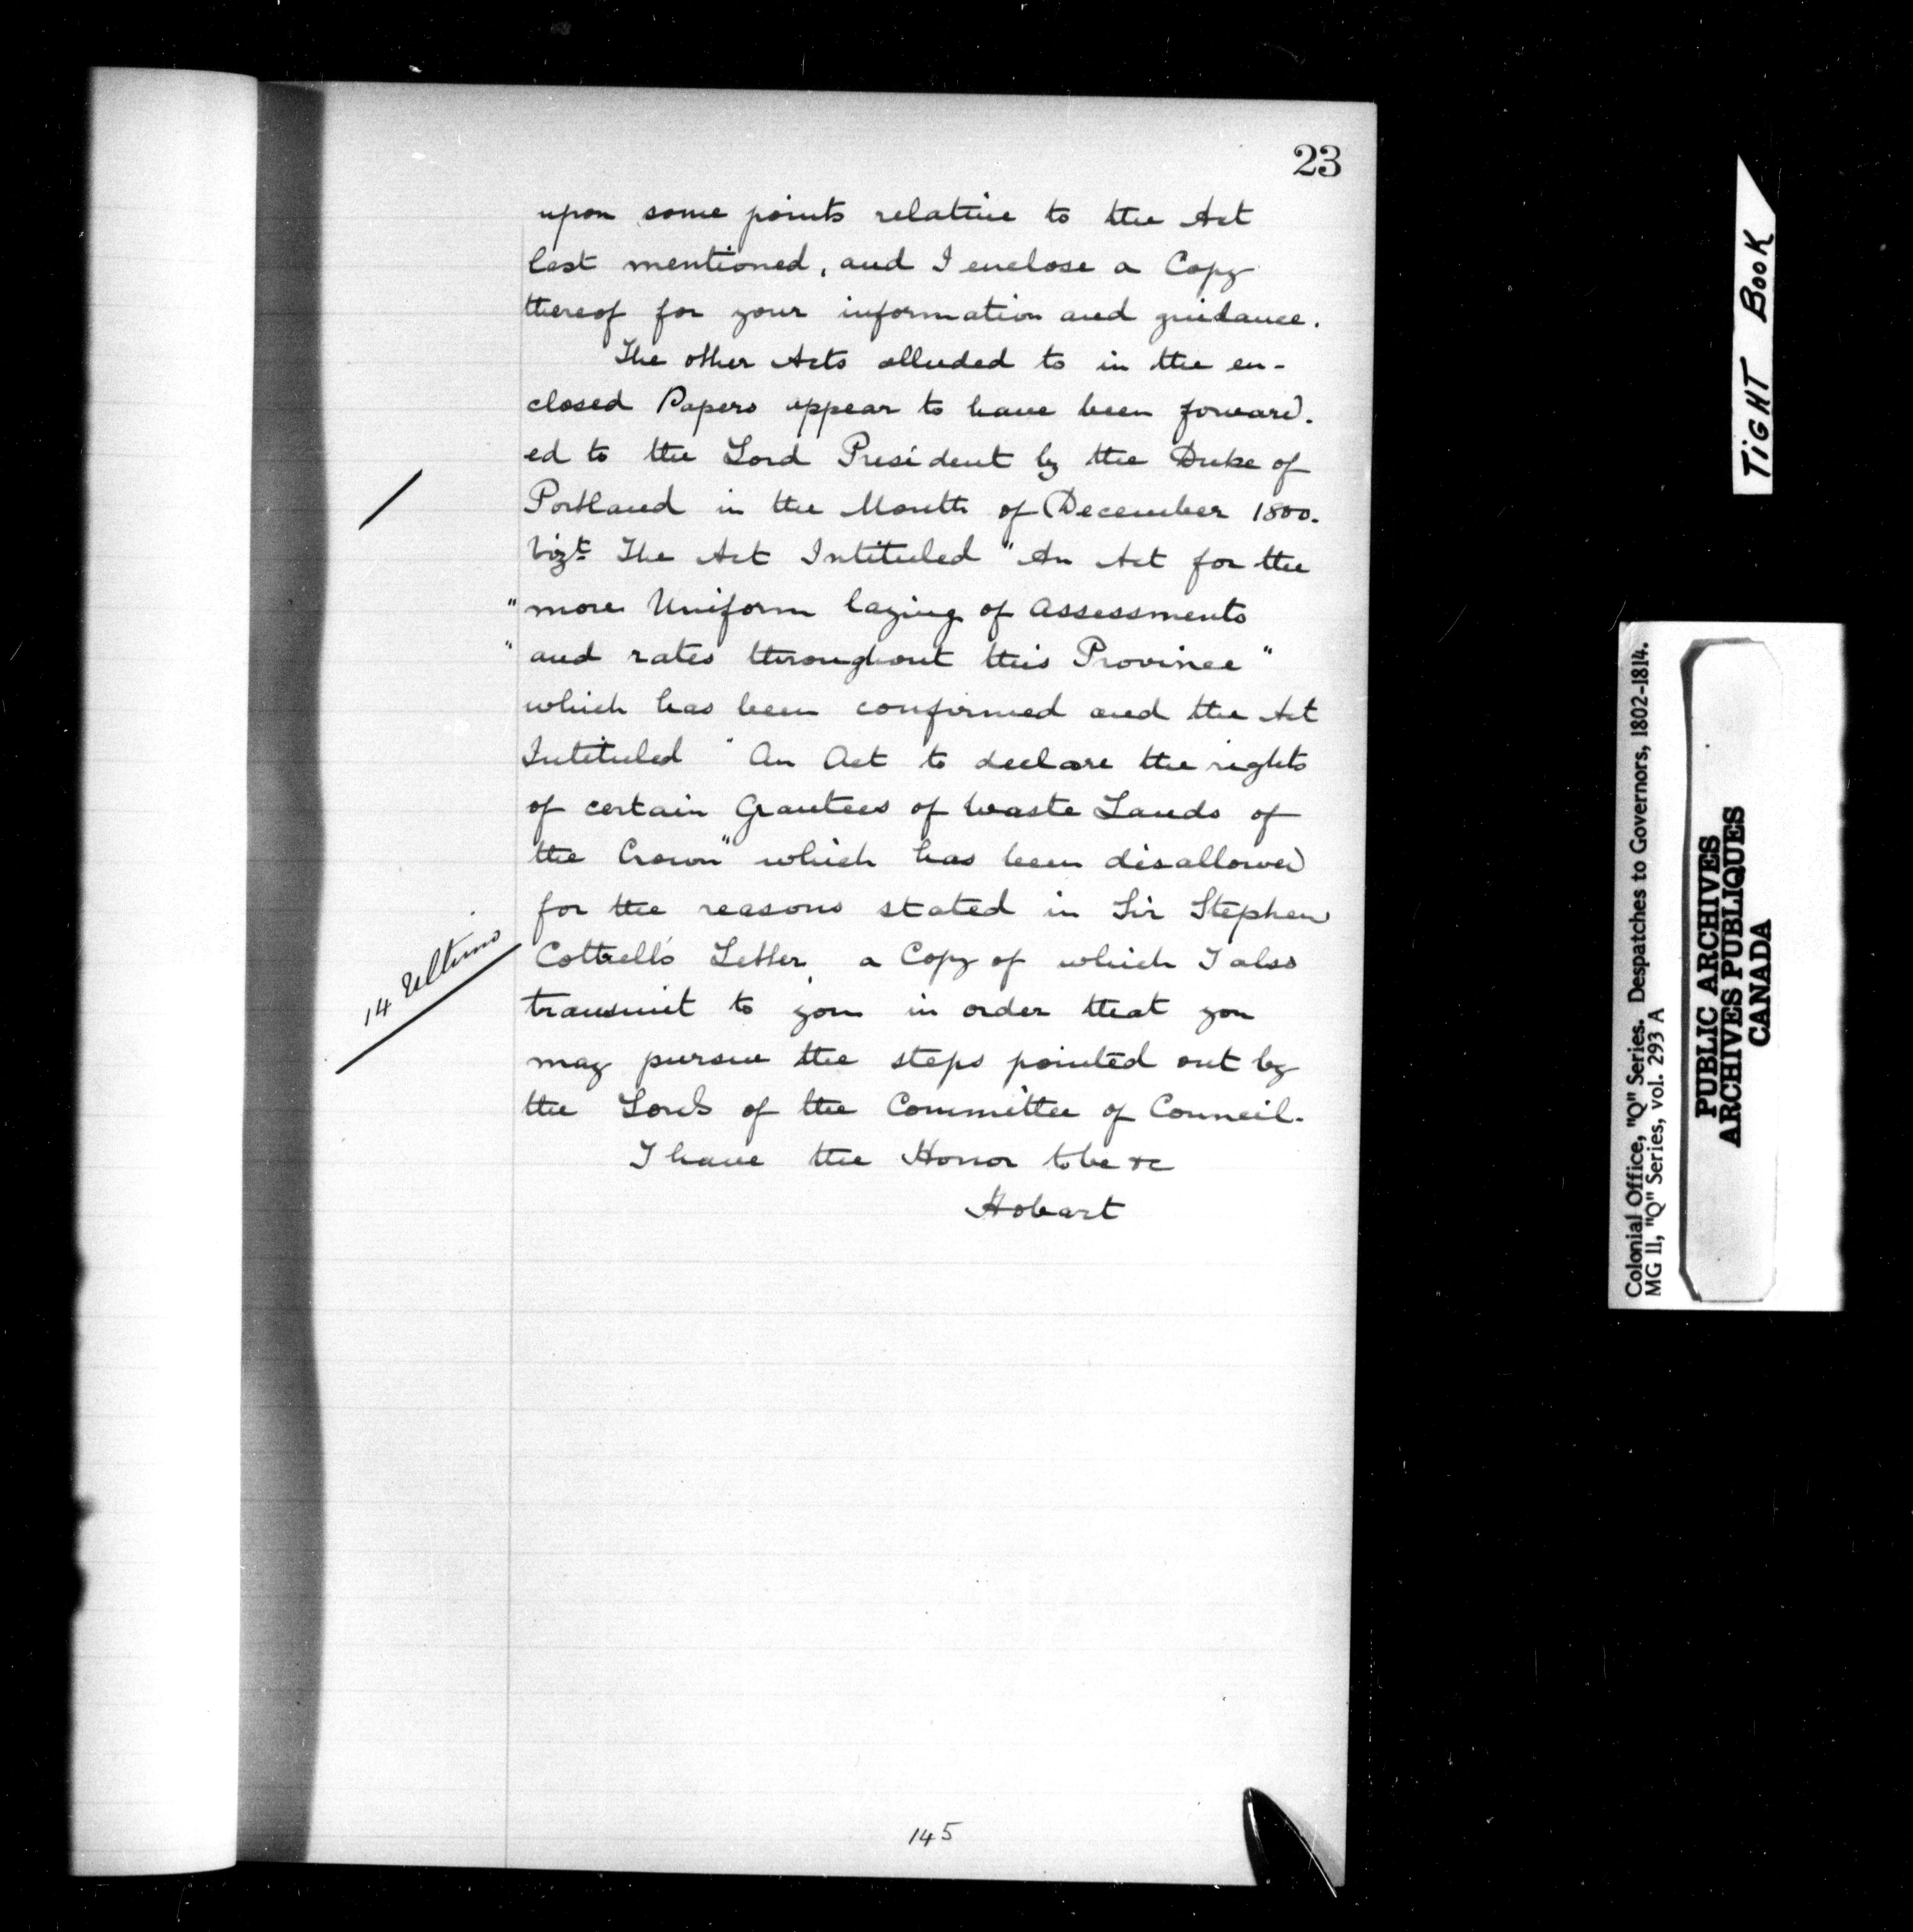 23
upon some points relative to the Act
last mentioned, and I enclose a Copy
thereof for your information and guidance.
The other Acts alluded to in the en-
closed Papers appear to have been forward.
ed to the Lord President by the Duke of
Portland in the Month of December 1800.
Vizt The Act Intituled "An Act for the
"more Uniform laying of Assessments
"and rates throughout this Province"
which has been confirmed and the Act
Intituled "An Act to declare the rights
of certain Grantees of Waste Lands of
the Crown" which has been disallowed
for the reasons stated in Sir Stephen
14 Ultimo
Cottrell's Letter, a Copy of which I also
transmit to you in order that you
may pursue the steps pointed out by
the Lords of the Committee of Council.
I have the Honor to be &c
Hobart
145
TIGHT BOOK
Colonial Office, "Q" Series. Despatches to Governors, 1802-1814.
MG 11, "Q" Series, vol. 293 A
PUBLIC ARCHIVES
ARCHIVES PUBLIQUES
CANADA